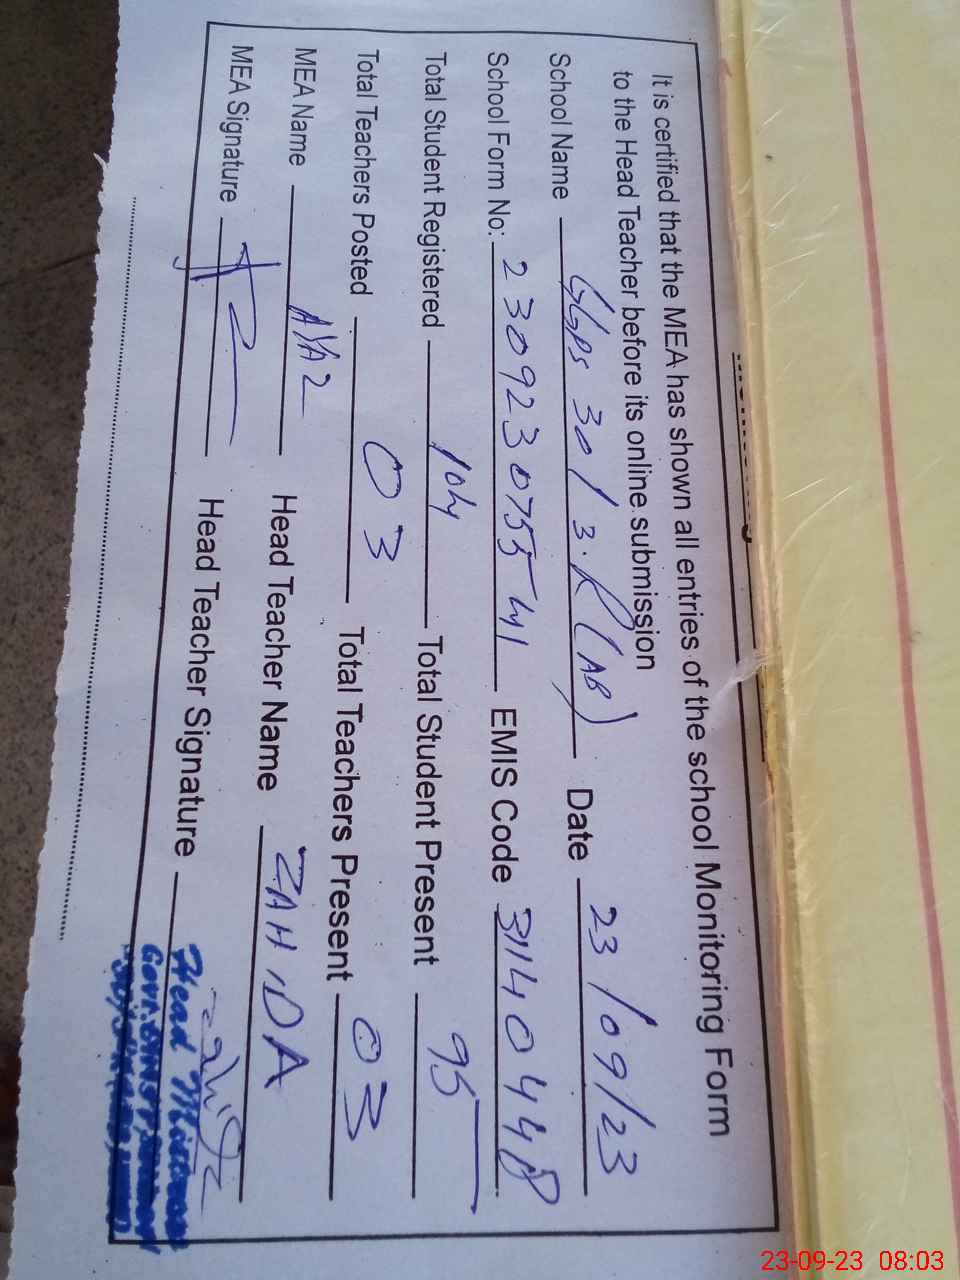 It is certified that the MEA has shown all entries of the school Monitoring Form
to the Head Teacher before its online submission
School Name GGPS 301/3.R (AB) Date 23/09/23
School Form No: 230923075541 EMIS Code 31140448
Total Student Registered 104 Total Student Present 95
Total Teachers Posted 03 Total Teachers Present 03
MEA Name Head Teacher Name ZAHIDA
MEA Signature Head Teacher Signature
Head Mistress
23-09-23 08:03